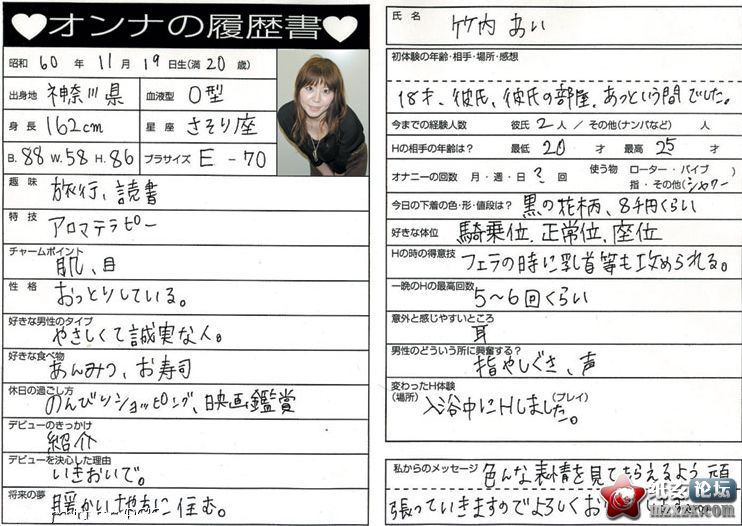 オンナの履歴書
昭和 60 年 11 月 19 日生(満 20 歳)
出身地 神奈川県 血液型 O型
身長 162cm 星座 さそり座
B. 88 W. 58 H. 86 ブラサイズ E-70
趣味
旅行、読書
特技
アロマテラピー
チャームポイント
肌、目
性格
おっとりしている。
好きな男性のタイプ
やさしくて誠実な人。
好きな食べ物
あんみつ、お寿司
休日の過ごし方
のんびりショッピング、映画鑑賞
デビューのきっかけ
紹介
デビューを決心した理由
いきおいで。
将来の夢
暖かい に住む。
氏名
竹内 あい
初体験の年齢・相手・場所・感想
18才、彼氏、彼氏の部屋、あっという間でした。
今までの経験人数 彼氏 2人 / その他(ナンパなど) 人
Hの相手の年齢は? 最低 20 才 最高 25 才
オナニーの回数 月・週・日 ? 回 使う物 ローター・バイブ
指・その他(シャワー
今日の下着の色・形・値段は? 黒の花柄、8千円くらい
好きな体位 騎乗位、正常位、座位
Hの時の得意技 フェラの時に乳首等も攻められる。
一晩のHの最高回数
5〜6回くらい
意外と感じやすいところ
耳
男性のどういう所に興奮する?
指やしぐさ、声
変わったH体験
(場所) 入浴中にHしました。 (プレイ)
私からのメッセージ 色んな表情を見てもらえるよう頑
張っていきますのでよろしくお
论坛